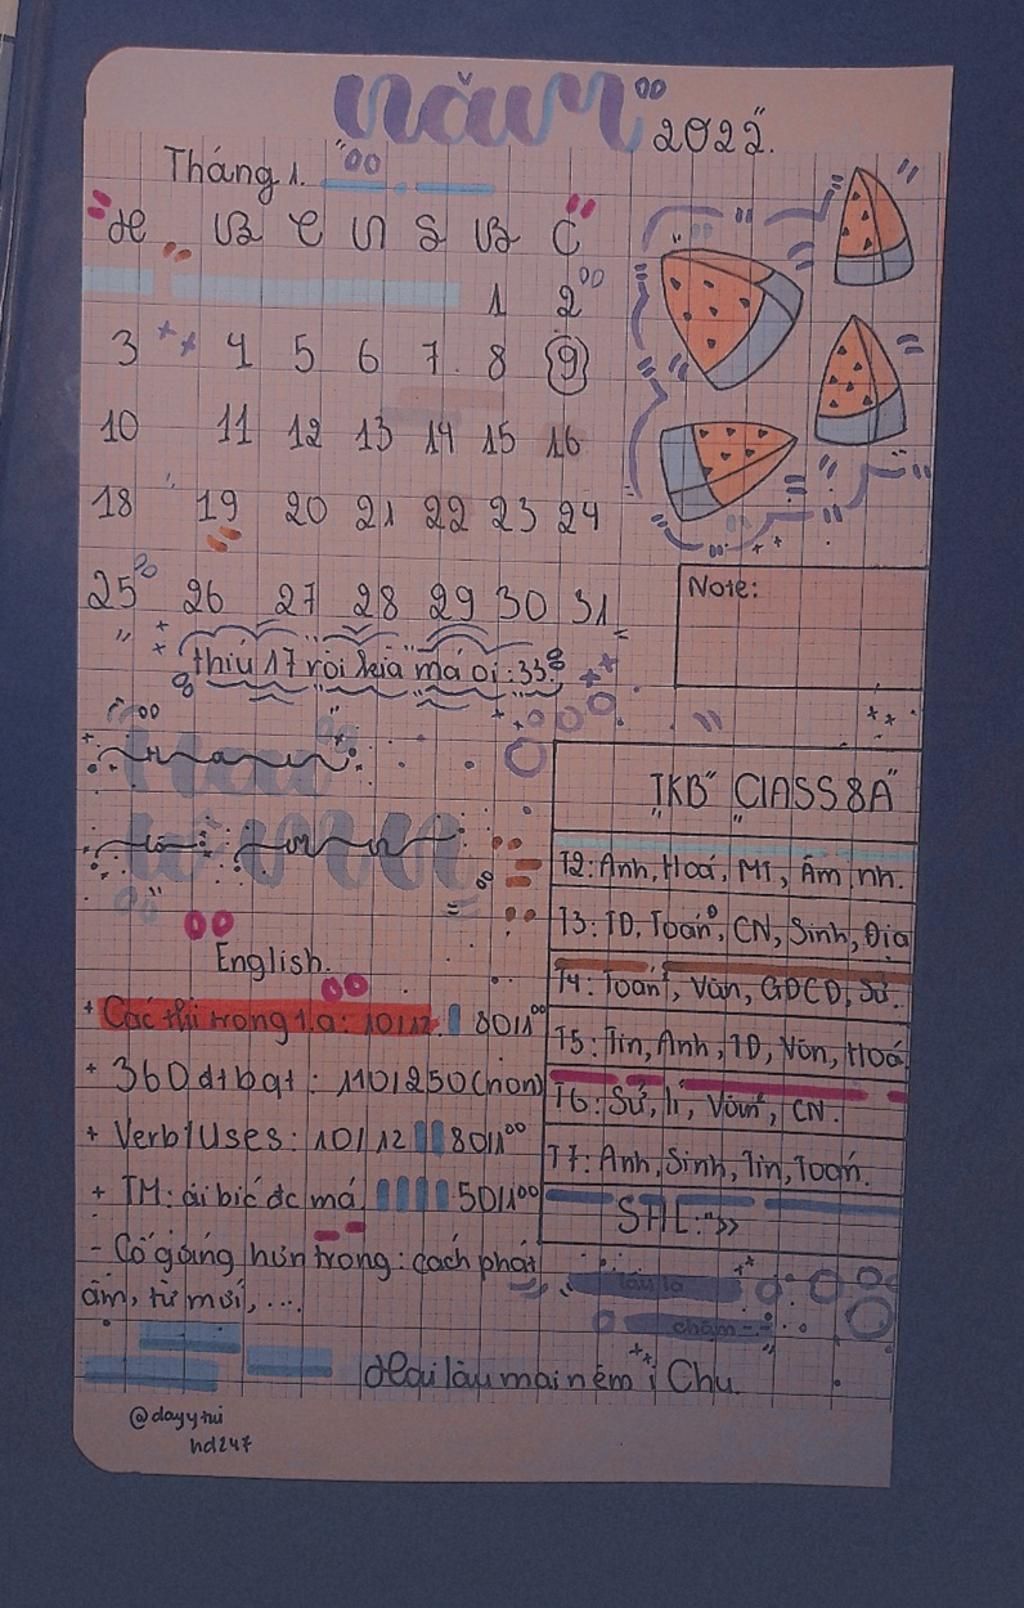 năm
2022.
Tháng 1.
H B T N S B C
1 2
3 4 5 6 7 8 9
10 11 12 13 14 15 16
18 19 20 21 22 23 24
25 26 27 28 29 30 31
thiú 17 rồi kìa má ơi :33
Note:
TKB" CLASS 8A"
T2: Anh, Hoá, MT, Âm nh.
T3: TD, Toán, CN, Sinh, Địa
T4: Toán, Văn, GDCD, Sử.
T5: Tin, Anh, TD, Văn, Hoá
T6: Sử, lí, Văn, CN.
T7: Anh, Sinh, Tin, Toán.
English.
+ Các thì trong t.a: 10/12. 80/100
+ 360 đt bqt: 110/250 (hơn)
+ Verb/Uses: 10/12 80/100
+ TM: ai biế đc má 50/100
- Cố gắng hơn trong: cách phát
âm, từ mới, ...
lâu la
chấm -.-
Chu
@dayytui
nd247